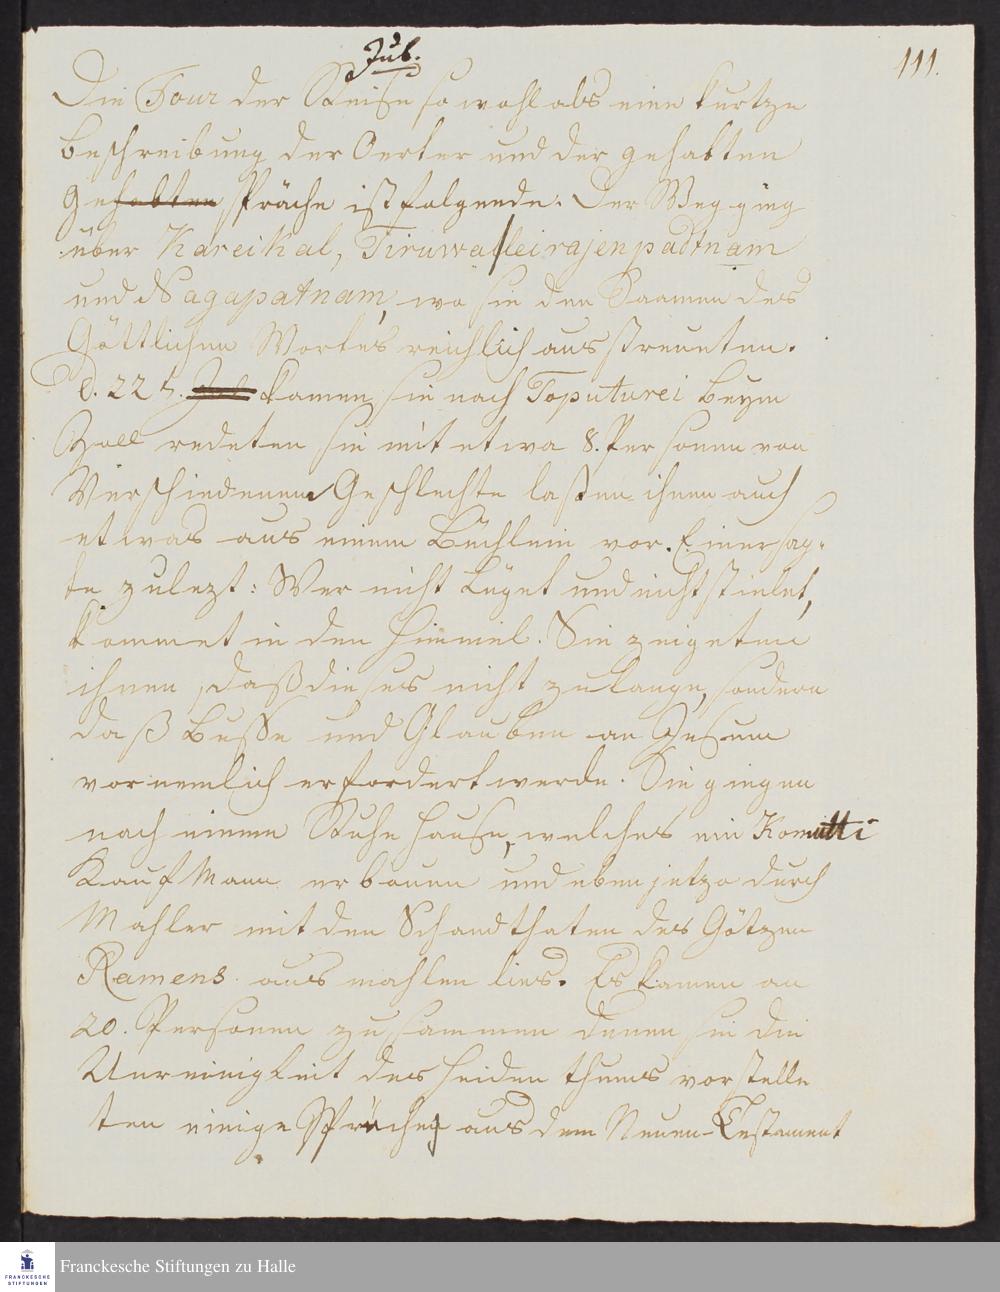 Jul.
111.
Die Tour der Reise sowohl als eine kurtze
Beschreibung der Oerter und der gehabten
Gehabten spräche ist folgende. Der Weg ging
über Kareikal, Tiruwalleirajenpadtnam
und Nagapatnam, wo sie den Saamen des
Göttlichen Wortes reichlich ausstreueten.
d. 22t. kamen sie nach Toputurei beym
Zoll redeten sie mit etwa 8. Personen von
Verschiedenem Geschlechte lasen ihnen auch
etwas aus einem Büchlein vor. Einer sag-
te zulezt: Wer nicht Lüget und nicht stielet,
kommet in den Himmel. Sie zeigeten
ihnen, daß dieses nicht zulange, sondern
daß Busse und Glauben an Jesum
vornemlich erfordert werde. Sie gingen
nach einem Ruhe Hause, welches ein Komutti
Kauf Mann erbauen und eben jetzo durch
Mahler mit den Schandthaten des Götzen
Ramens aus mahlen lies. Es kamen an
20. Personen zusammen denen sie die
Unreinigkeit des Heidenthums vorstelle
ten einige Sprüche aus dem Neuen Testament
FRANCKESCHE
STIFTUNGEN
Franckesche Stiftungen zu Halle